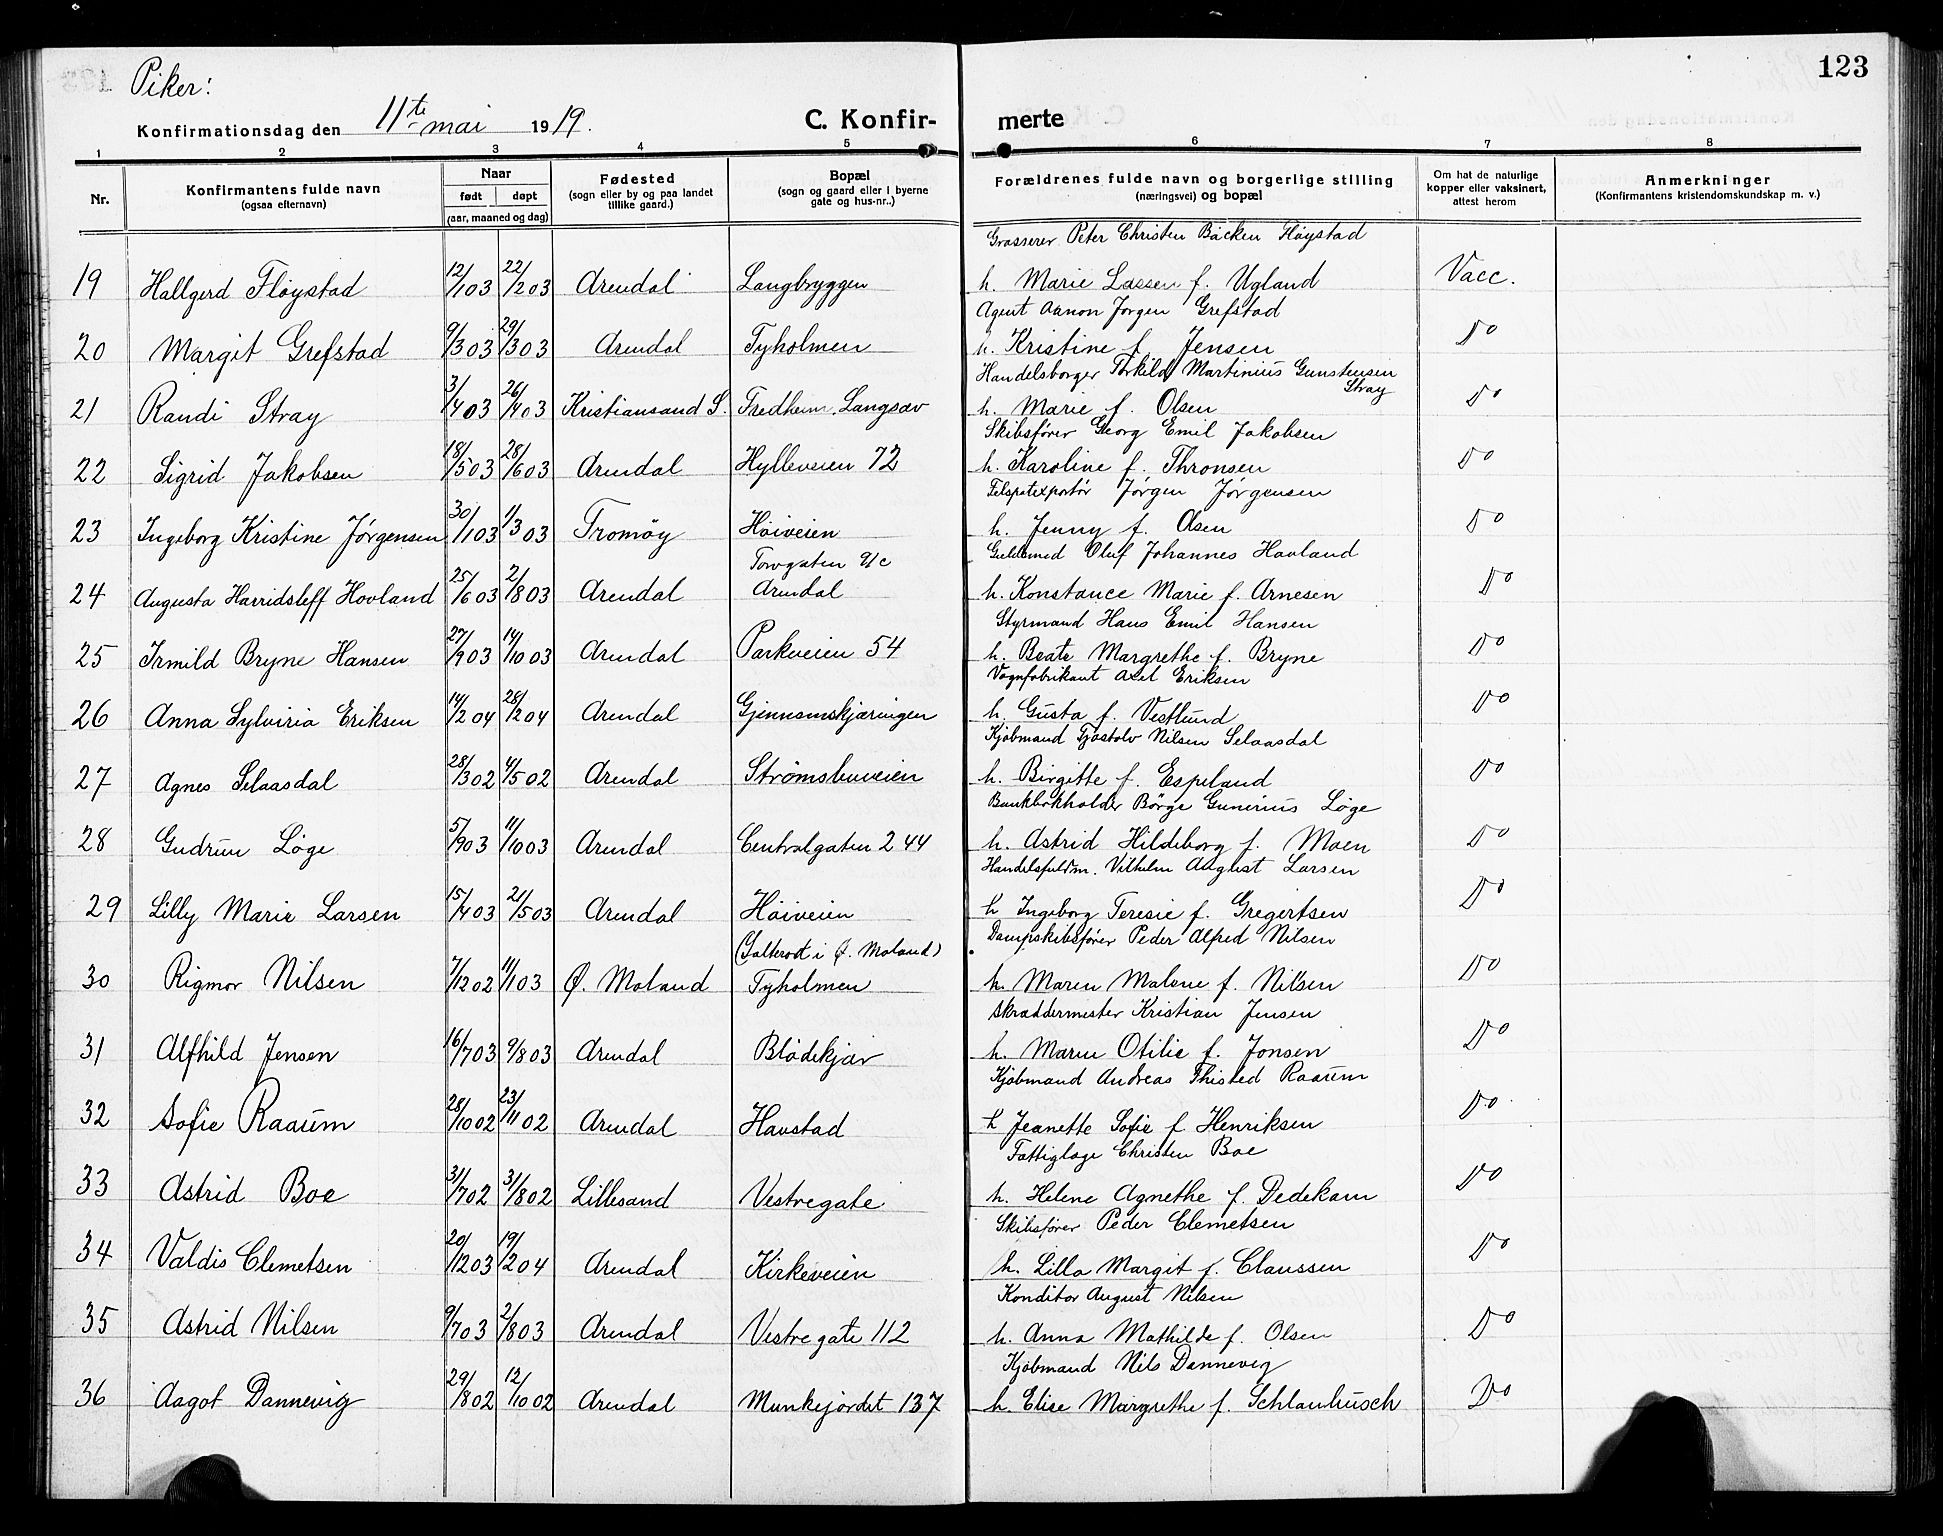 123
Piker:
Konfirmationsdag den 11te mai 1919.
C. Konfir-merte
1 2 3 4 5 6 7 8
Nr.
Konfirmantens fulde navn
(ogsaa efternavn)
Naar
født døpt
(aar, maaned og dag)
Fødested
(sogn eller by og paa landet
tillike gaard.)
Bopæl
(sogn og gaard eller i byerne
gate og hus-nr..)
Forældrenes fulde navn og borgerlige stilling
(næringsvei) og bopæl
Om hat de naturlige
kopper eller vaksinert,
attest herom
Anmerkninger
(Konfirmantens kristendomskundskap m. v.)
Grosserer Peter Christen Backen Fløystad
19 Hallgerd Fløystad 12/1 03 22/2 03 Arendal Langbryggen h. Marie Lassen f. Ugland Vacc.
Agent Aanon Jørgen Grefstad
20 Margit Grefstad 9/3 03 29/3 03 Arendal Tyholmen h. Kristine f. Jensen Do
Handelsborger Torkild Martinius Gunstensen
Stray
21 Randi Stray 3/4 03 26/4 03 Kristiansand S. Fredheim, Langsæv h. Marie f. Olsen Do
Skibsfører Georg Emil Jakobsen
22 Sigrid Jakobsen 18/5 03 28/6 03 Arendal Hylleveien 72 h. Karoline f. Thronsen Do
Felspatexportør Jørgen Jørgensen
23 Ingeborg Kristine Jørgensen 30/1 03 1/3 03 Tromøy Høiveien h. Jenny f. Olsen Do
Torvgaten 9/c Guldsmed Oluf Johannes Hovland
24 Augusta Harridsleff Hovland 25/6 03 2/8 03 Arendal Arendal h. Konstance Marie f. Arnesen Do
Styrmand Hans Emil Hansen
25 Irmild Bryne Hansen 27/9 03 14/10 03 Arendal Parkveien 54 h. Beate Margrethe f. Bryne Do
Vognfabrikant Axel Eriksen
26 Anna Sylviria Eriksen 14/2 04 28/2 04 Arendal Gjennemskjæringen h. Gusta f. Vestlund Do
Kjøbmand Tjøstolv Nilsen Selaasdal
27 Agnes Selaasdal 28/3 02 4/5 02 Arendal Strømsbuveien h. Birgitte f. Espeland Do
Bankbokholder Børge Gunerius Løge
28 Gudrun Løge 5/9 03 11/10 03 Arendal Centralgaten 244 h. Astrid Hildeborg f. Moen Do
Handelsfuldm. Vilhelm August Larsen
29 Lilly Marie Larsen 15/4 03 21/5 03 Arendal Høiveien h Ingeborg Teresie f. Gregertsen Do
(Salterød i Ø. Moland) Dampskibsfører Peder Alfred Nilsen
30 Rigmor Nilsen 7/12 02 11/1 03 Ø. Moland Tyholmen h. Maren Malene f. Nilsen Do
Skræddermester Kristian Jensen
31 Alfhild Jensen 16/7 03 9/8 03 Arendal Blødekjær h. Maren Otilie f. Jonsen Do
Kjøbmand Andreas Thisted Raaum
32 Sofie Raaum 28/10 02 23/11 02 Arendal Havstad h Jeanette Sofie f Henriksen Do
Fattiglæge Christen Boe
33 Astrid Boe 31/7 02 31/8 02 Lillesand Vestregate h. Helene Agnethe f. Dedekam Do
Skibsfører Peder Clemetsen
34 Valdis Clemetsen 20/12 03 19/2 04 Arendal Kirkeveien h. Lilla Margit f. Claussen Do
Konditor August Nilsen
35 Astrid Nilsen 9/7 03 2/8 03 Arendal Vestregate 112 h. Anna Mathilde f. Olsen Do
Kjøbmand Nils Dannevig
36 Aagot Dannevig 29/8 02 12/10 02 Arendal Munkejordet 137 h. Elise Margrethe f. Schlanbusch Do